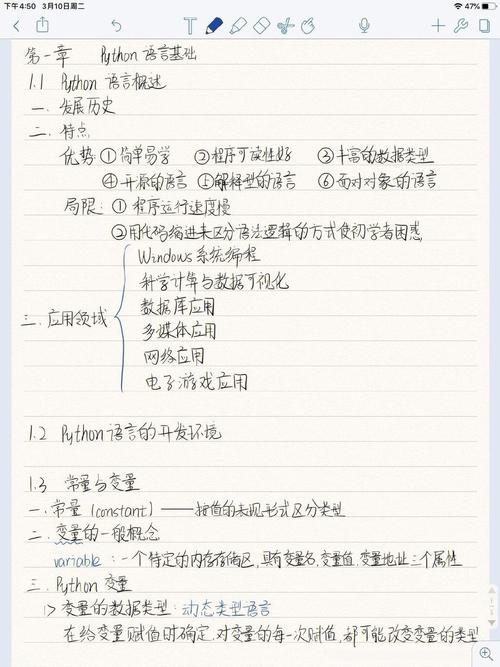 下午4:50 3月10日周二 47%
第一章 Python 语言基础
1.1 Python 语言概述
一. 发展历史
二. 特点
优势: ①简单易学 ②程序可读性好 ③丰富的数据类型
④开源的语言 ⑤解释型的语言 ⑥面对对象的语言
局限: ①程序运行速度慢
②用代码缩进来区分语法逻辑的方式使初学者困惑
Windows系统编程
科学计算与数据可视化
数据库应用
三. 应用领域
多媒体应用
网络应用
电子游戏应用
1.2 Python语言的开发环境
1.3 常量与变量
一. 常量 (constant) ——按值的表现形式区分类型
二. 变量的一般概念
variable: 一个特定的内存存储区, 具有变量名, 变量值, 变量地址三个属性
三. Python 变量
1> 变量的数据类型: 动态类型语言
在给变量赋值时确定, 对变量的每一次赋值, 都可能改变变量的类型